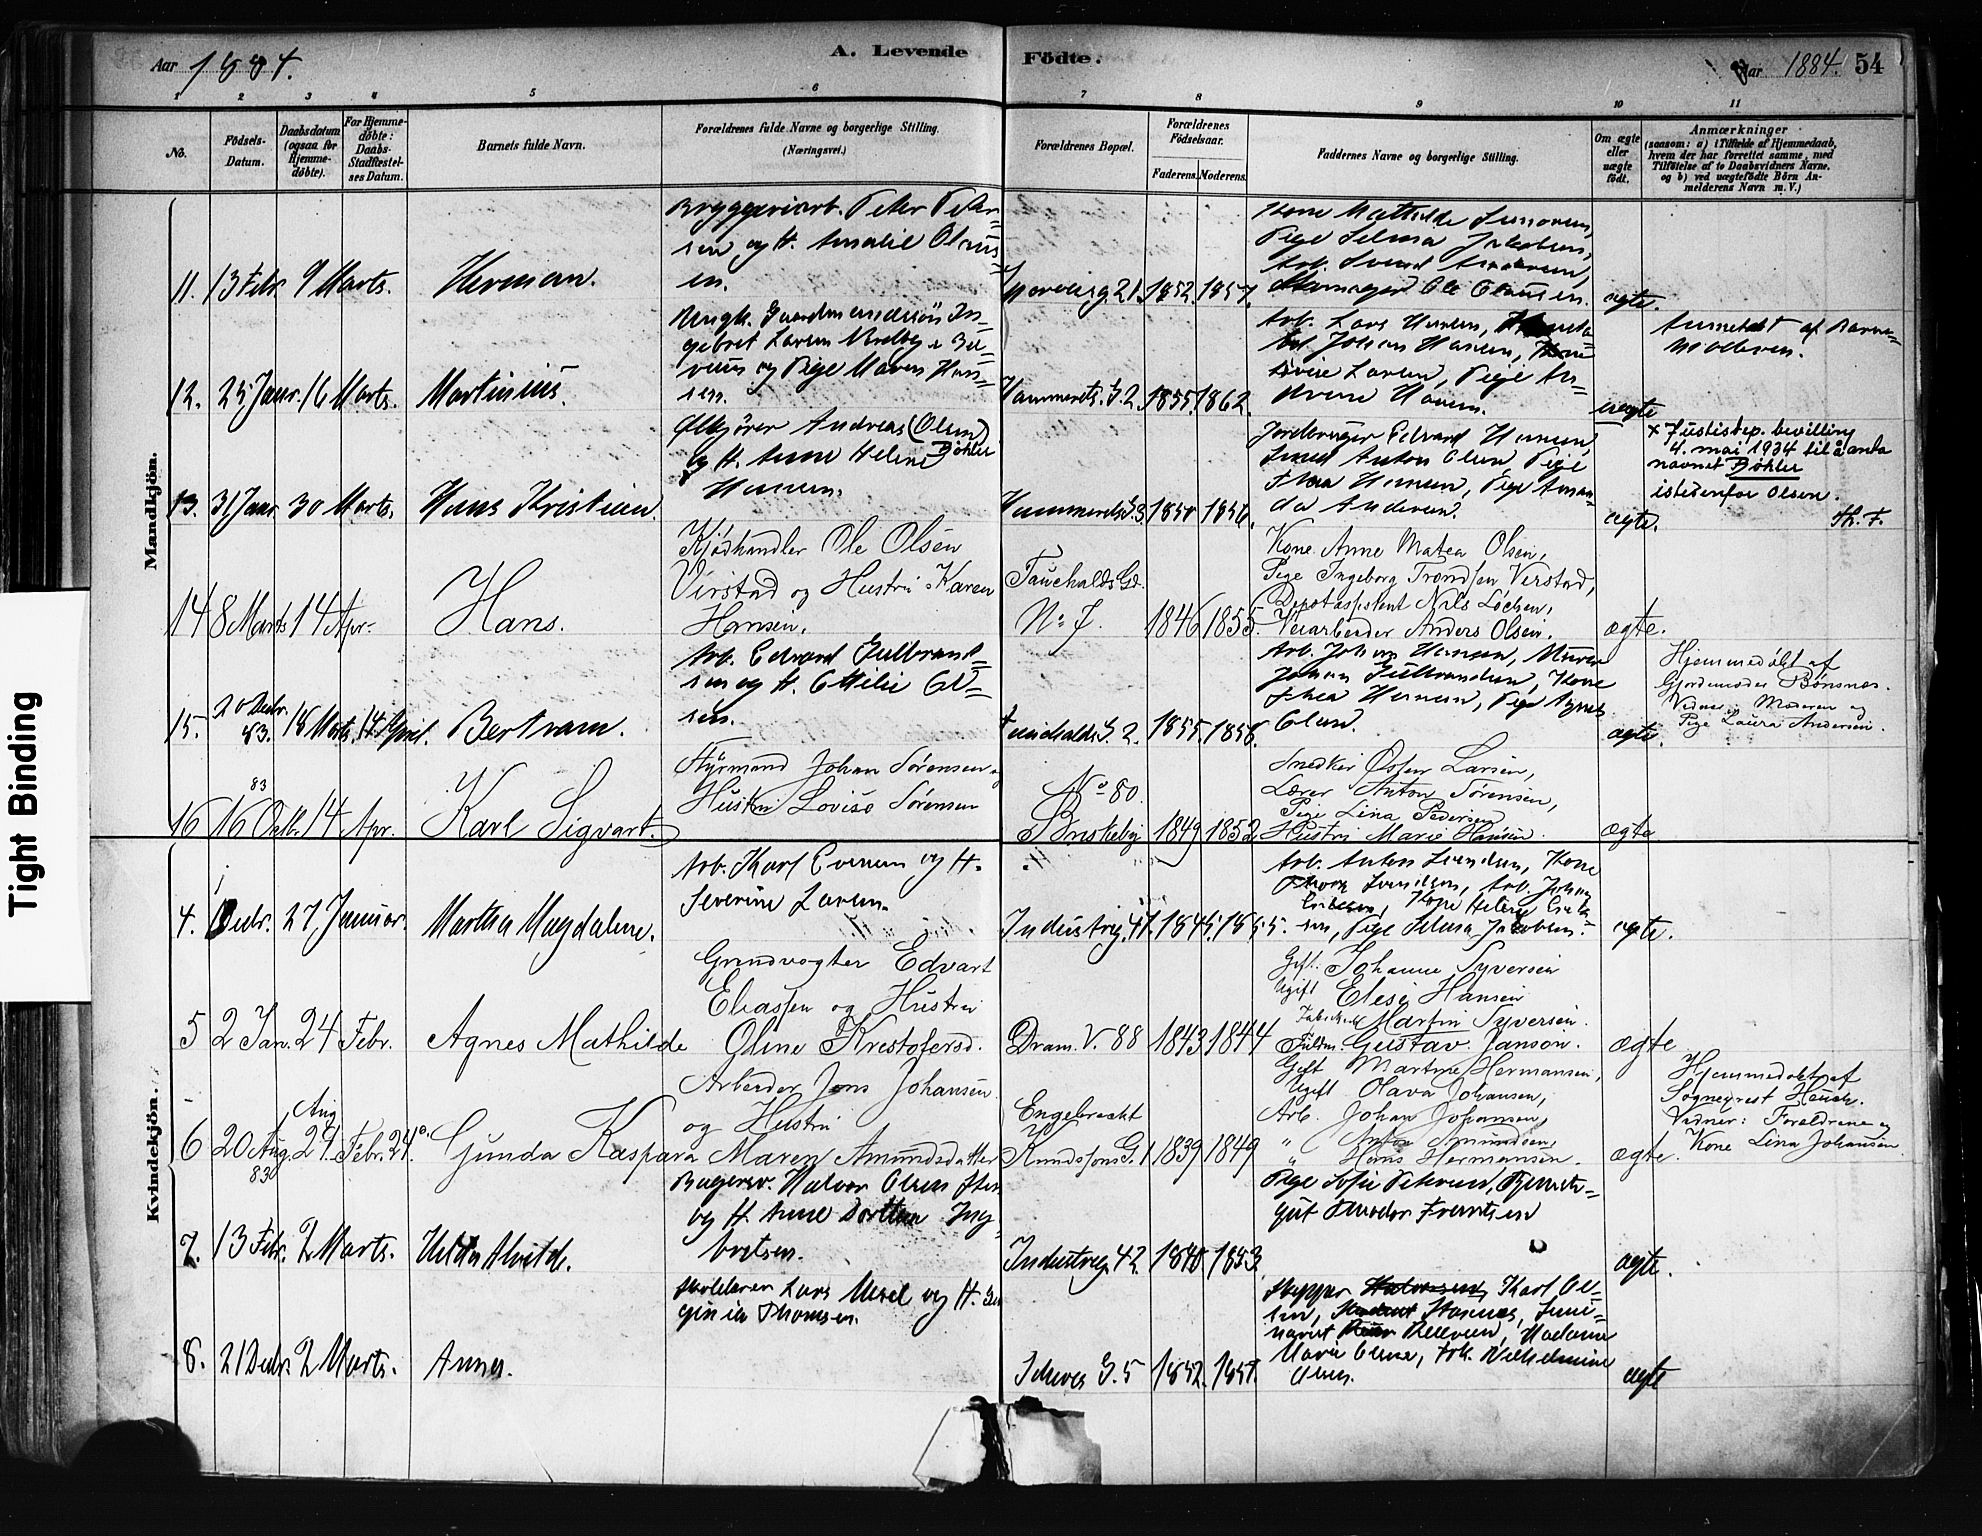 Aar 1884.
A. Levende
Födte.
Aar 1884. 54
1 2 3 4 5 6 7 8 9 10 11
No.
Födsels-
Datum.
Daabsdatum
(ogsaa for
Hjemme-
döbte).
For Hjemme-
döbte:
Daabs-
Stadfæstel-
ses Datum.
Barnets fulde Navn.
Forældrenes fulde Navne og borgerlige Stilling.
(Næringsvei.)
Forældrenes Bopæl.
Forældrenes
Födselsaar.
Faderens. Moderens.
Faddernes Navne og borgerlige Stilling.
Om ægte
eller
uægte
födt.
Anmærkninger
(saasom: a) i Tilfælde af Hjemmedaab,
hvem der har forrettet samme, med
Tilföielse af to Daabsvidners Navne,
og b) ved uægtefödte Börn An-
melderens Navn m. V.)
Mandkjön.
11. 13 Febr. 9 Marts. Herman.
Bryggeriarb. Peter Peter=
sen og H. Amalie Olaus=
en.
21. 1852. 1857.
Pige Selma Jakobsen,
Ole Olausen.
ægte.
12. 25 Janr. 16 Marts. Martinius.
Ungk. Gaardmandssøn In=
gebret Larsen
og Pige Maren Han=
sen.
Hammersts. G. 2. 1855. 1862.
Arb. Lars Hansen,
Johan Hansen, Kone
Larsen, Pige
Hansen.
uægte
Anmeldt af Barne=
moderen.
13. 31 Janr. 30 Marts. Hans Kristian.
Ølkjører Andreas (Olsen)
og H. Anne Helene Bøhler
Hansen.
Hammersts. G. 3. 1856.
Jordbruger Edvard Hansen,
Smed Anton Olsen, Pige
Thea Hansen, Pige Aman=
da Andersen.
ægte.
x Justisdep. bevilling
4. mai 1934 til å anta
navnet Bøhler
istedenfor Olsen.
Th. F.
14 8 Marts 14 Apr. Hans.
Kjødhandler Ole Olsen
Virstad og Hustru Karen
Hansen.
Fauchalds Gd.
No 7. 1846 1855.
Kone Anne Matea Olsen,
Pige Ingeborg Trondsen Verstad,
Depotassistent Nils Lochen,
Veiarbeider Anders Olsen.
ægte.
15. 20 Decbr. 83. 18 Marts. 14 April. Bertram.
Arb. Edvard Gulbrand=
sen og H. Ottilie Ol=
sen.
Fauchalds G. 2. 1855. 1856.
Arb. Johan Hansen, Murer
Johan Gulbrandsen, Kone
Thea Hansen, Pige Agnes
Olsen.
ægte.
Hjemmedøbt af
Gjordemoder Bønsnes.
Vidner: Moderen og
Pige Laura Andersen.
16 16 Octbr. 83 14 Apr. Karl Sigvart.
Styrmand Johan Sørensen og
Hustru Lovise Sørensen
No 80
Ønskeby 1849 1852
Snedker Østen Larsen,
Lærer Anton Sørensen,
Pige Lina Pedersen
Hustru Marie Hansen.
ægte
Kvindekjön.
4. 1 Decbr. 27 Januar. Martha Magdalene.
Arb. Karl Evensen og H.
Severine Larsen.
Industrig. 41. 1845. 1855.
Arb. Anton Svendsen, Kone
Svendsen, Arb. Johan
Kone Helene
Pige Selma Jakobsen.
ægte.
5 2 Jan. 24 Febr. Agnes Mathilde
Grundvogter Edvart
Eliassen og Hustru
Oline Krestofersd.
Dram. V. 88 1843 1844
Gift. Johanne Syversen
Ugift Elise Hansen
Martin Syversen.
Gustav Janson.
ægte
6 20 Aug. 83 27 Aug Febr. 24. Gunda Kaspara
Arbeider Jens Johansen
og Hustru
Maren Amundsdatter
Engebrecht
Knudsons G. 1 1839 1849
Gift Martine Hermansen,
Ugift Olava Johansen,
Arb. Johan Johansen,
" Anton Amundsen,
" Hans Hermansen.
ægte.
Hjemmedøbt af
Sognepræst Hauch.
Vidner: Forældrene og
Kone Lina Johansen
7. 13 Febr. 2 Marts. Hilda Alvilde.
Halvor Olsen
og H. Anne Dorthea Ing=
bretsen.
Industrieg. 42. 1840 1853.
Pige Sofie Petersen,
gut Teodor Frantsen
ægte.
8. 21 Decbr. 2 Marts. Anna.
Skolelærer Lars og H.
Thomsen.
G. 5 1852. 1857.
Skipper Karl Ol=
sen, Semi=
narist Madame
Marie Olsen, Frk. Vilhelmine
Olsen.
ægte
Tight Binding